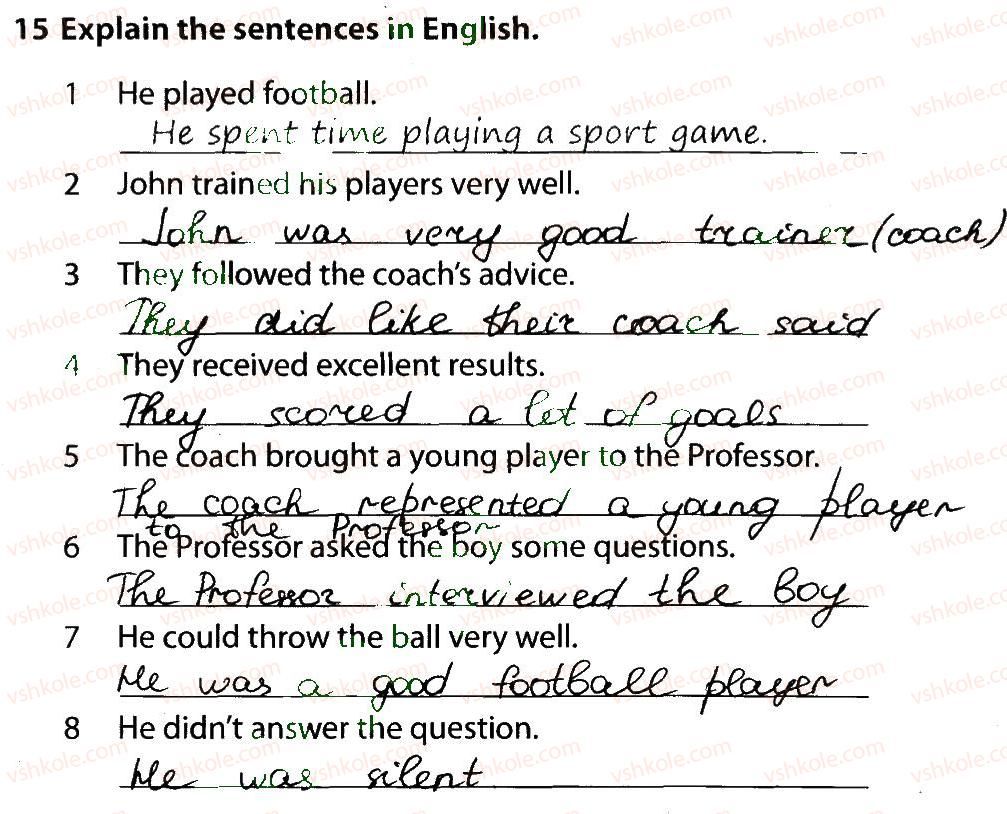 15 Explain the sentences in English.
1 He played football.
He spent time playing a sport game.
2 John trained his players very well.
John was very good trainer (coach)
3 They followed the coach's advice.
They did like their coach said
4 They received excellent results.
They scored a lot of goals
5 The coach brought a young player to the Professor.
The coach represented a young player
to the Professor
6 The Professor asked the boy some questions.
The Professor interviewed the boy
7 He could throw the ball very well.
He was a good football player
8 He didn't answer the question.
He was silent